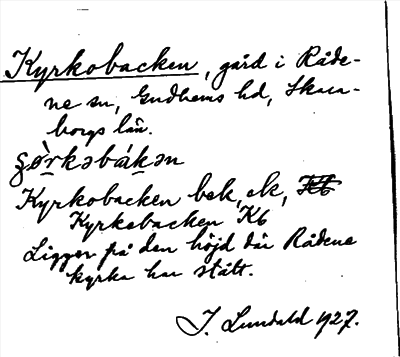 Kyrkobacken, gård i Råde-
ne sn, Gudhems hd, Skara-
borgs län.
ʂø̀rkəbákən
Kyrkobacken bek, ek,
Kyrkebacken Kb
Ligger på den höjd där Rådene
kyrka har stått.
J. Lundahl 1927.